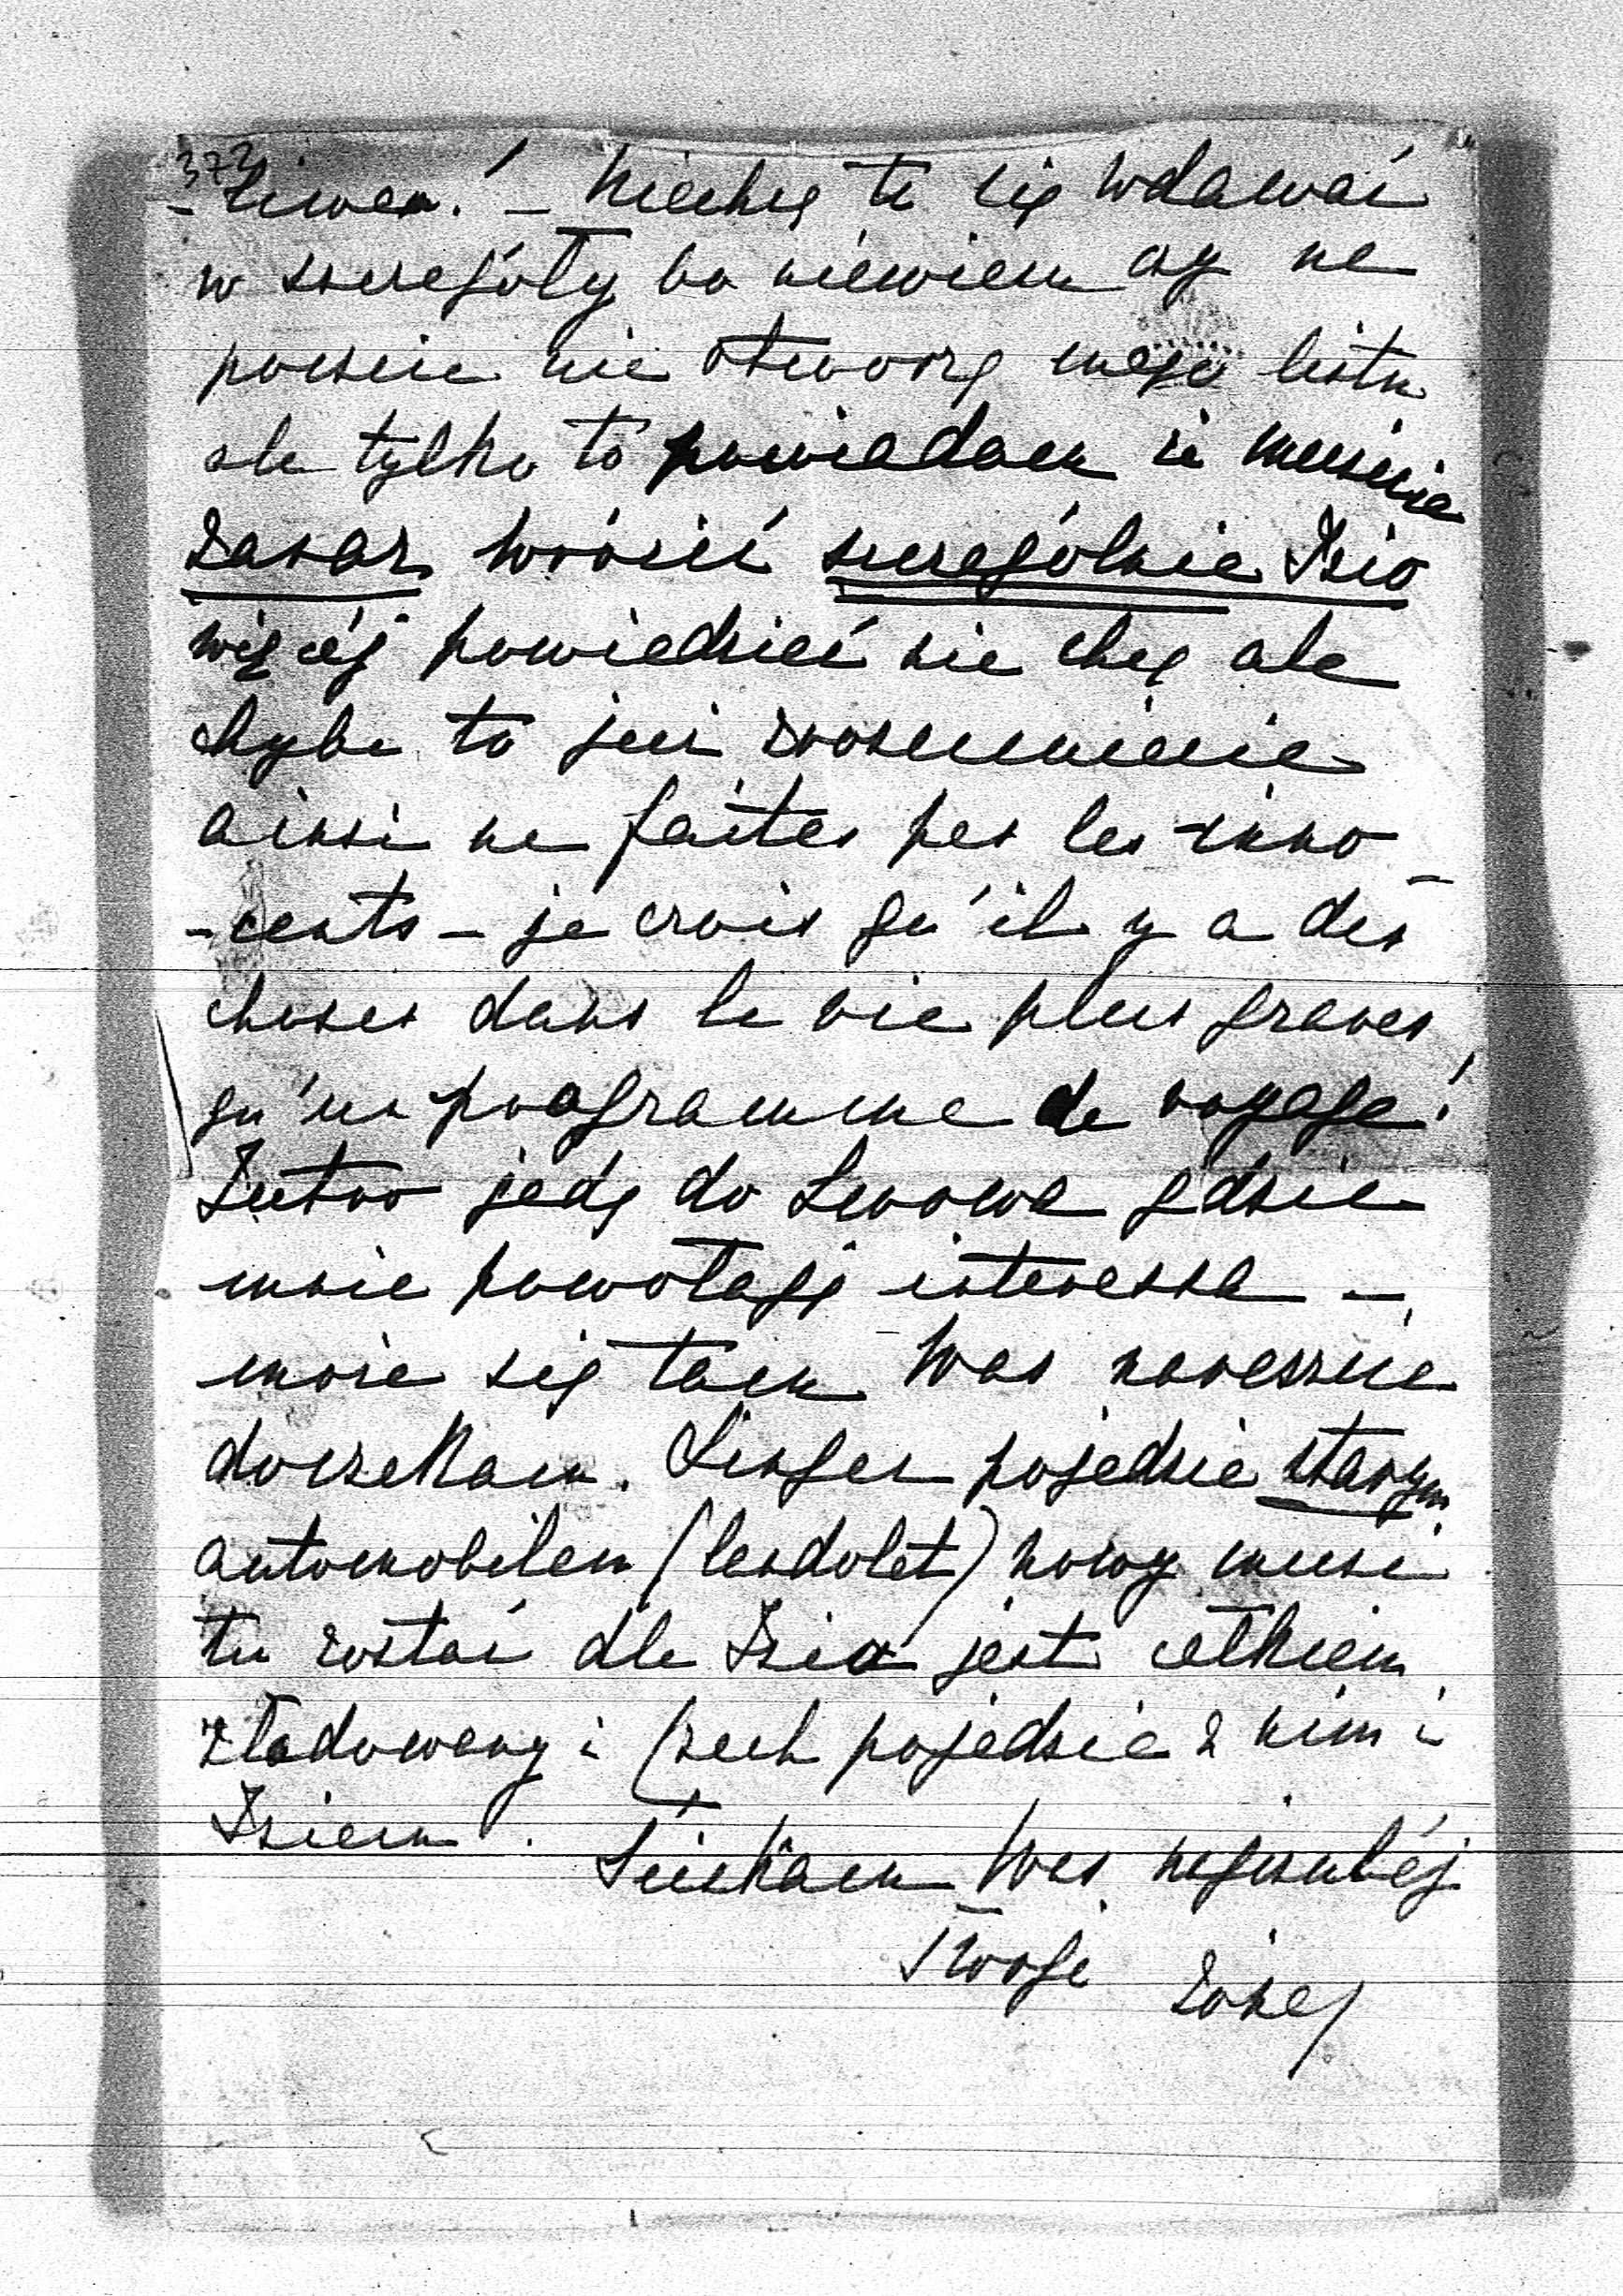 372
- liwem! - Niechcę tu się wdawać
w szczegóły bo niewiem czy na
poczcie nie otworzą mego listu
ale tylko to powiadam że musicie
zaraz wrócić szczególnie Izio
więcéj powiedzieć nie chcę ale
chyba to już zrozumiecie
ainsi ne faites pas les inno-
-cents - je crois qu'il y a des
choses dans la vie plus graves
qu'un programme de voyage!
Jutro jadę do Lwowa gdzie
mnie powołają interessa -
może się tam Was nareszcie
doczekam. Singer pojedzie starym
automobilem (landolet) nowy musi
tu zostać dla Izia jest całkiem
zładowany i Czech pojedzie z nim i
Iziem. Ściskam Was najczuléj
Twoja